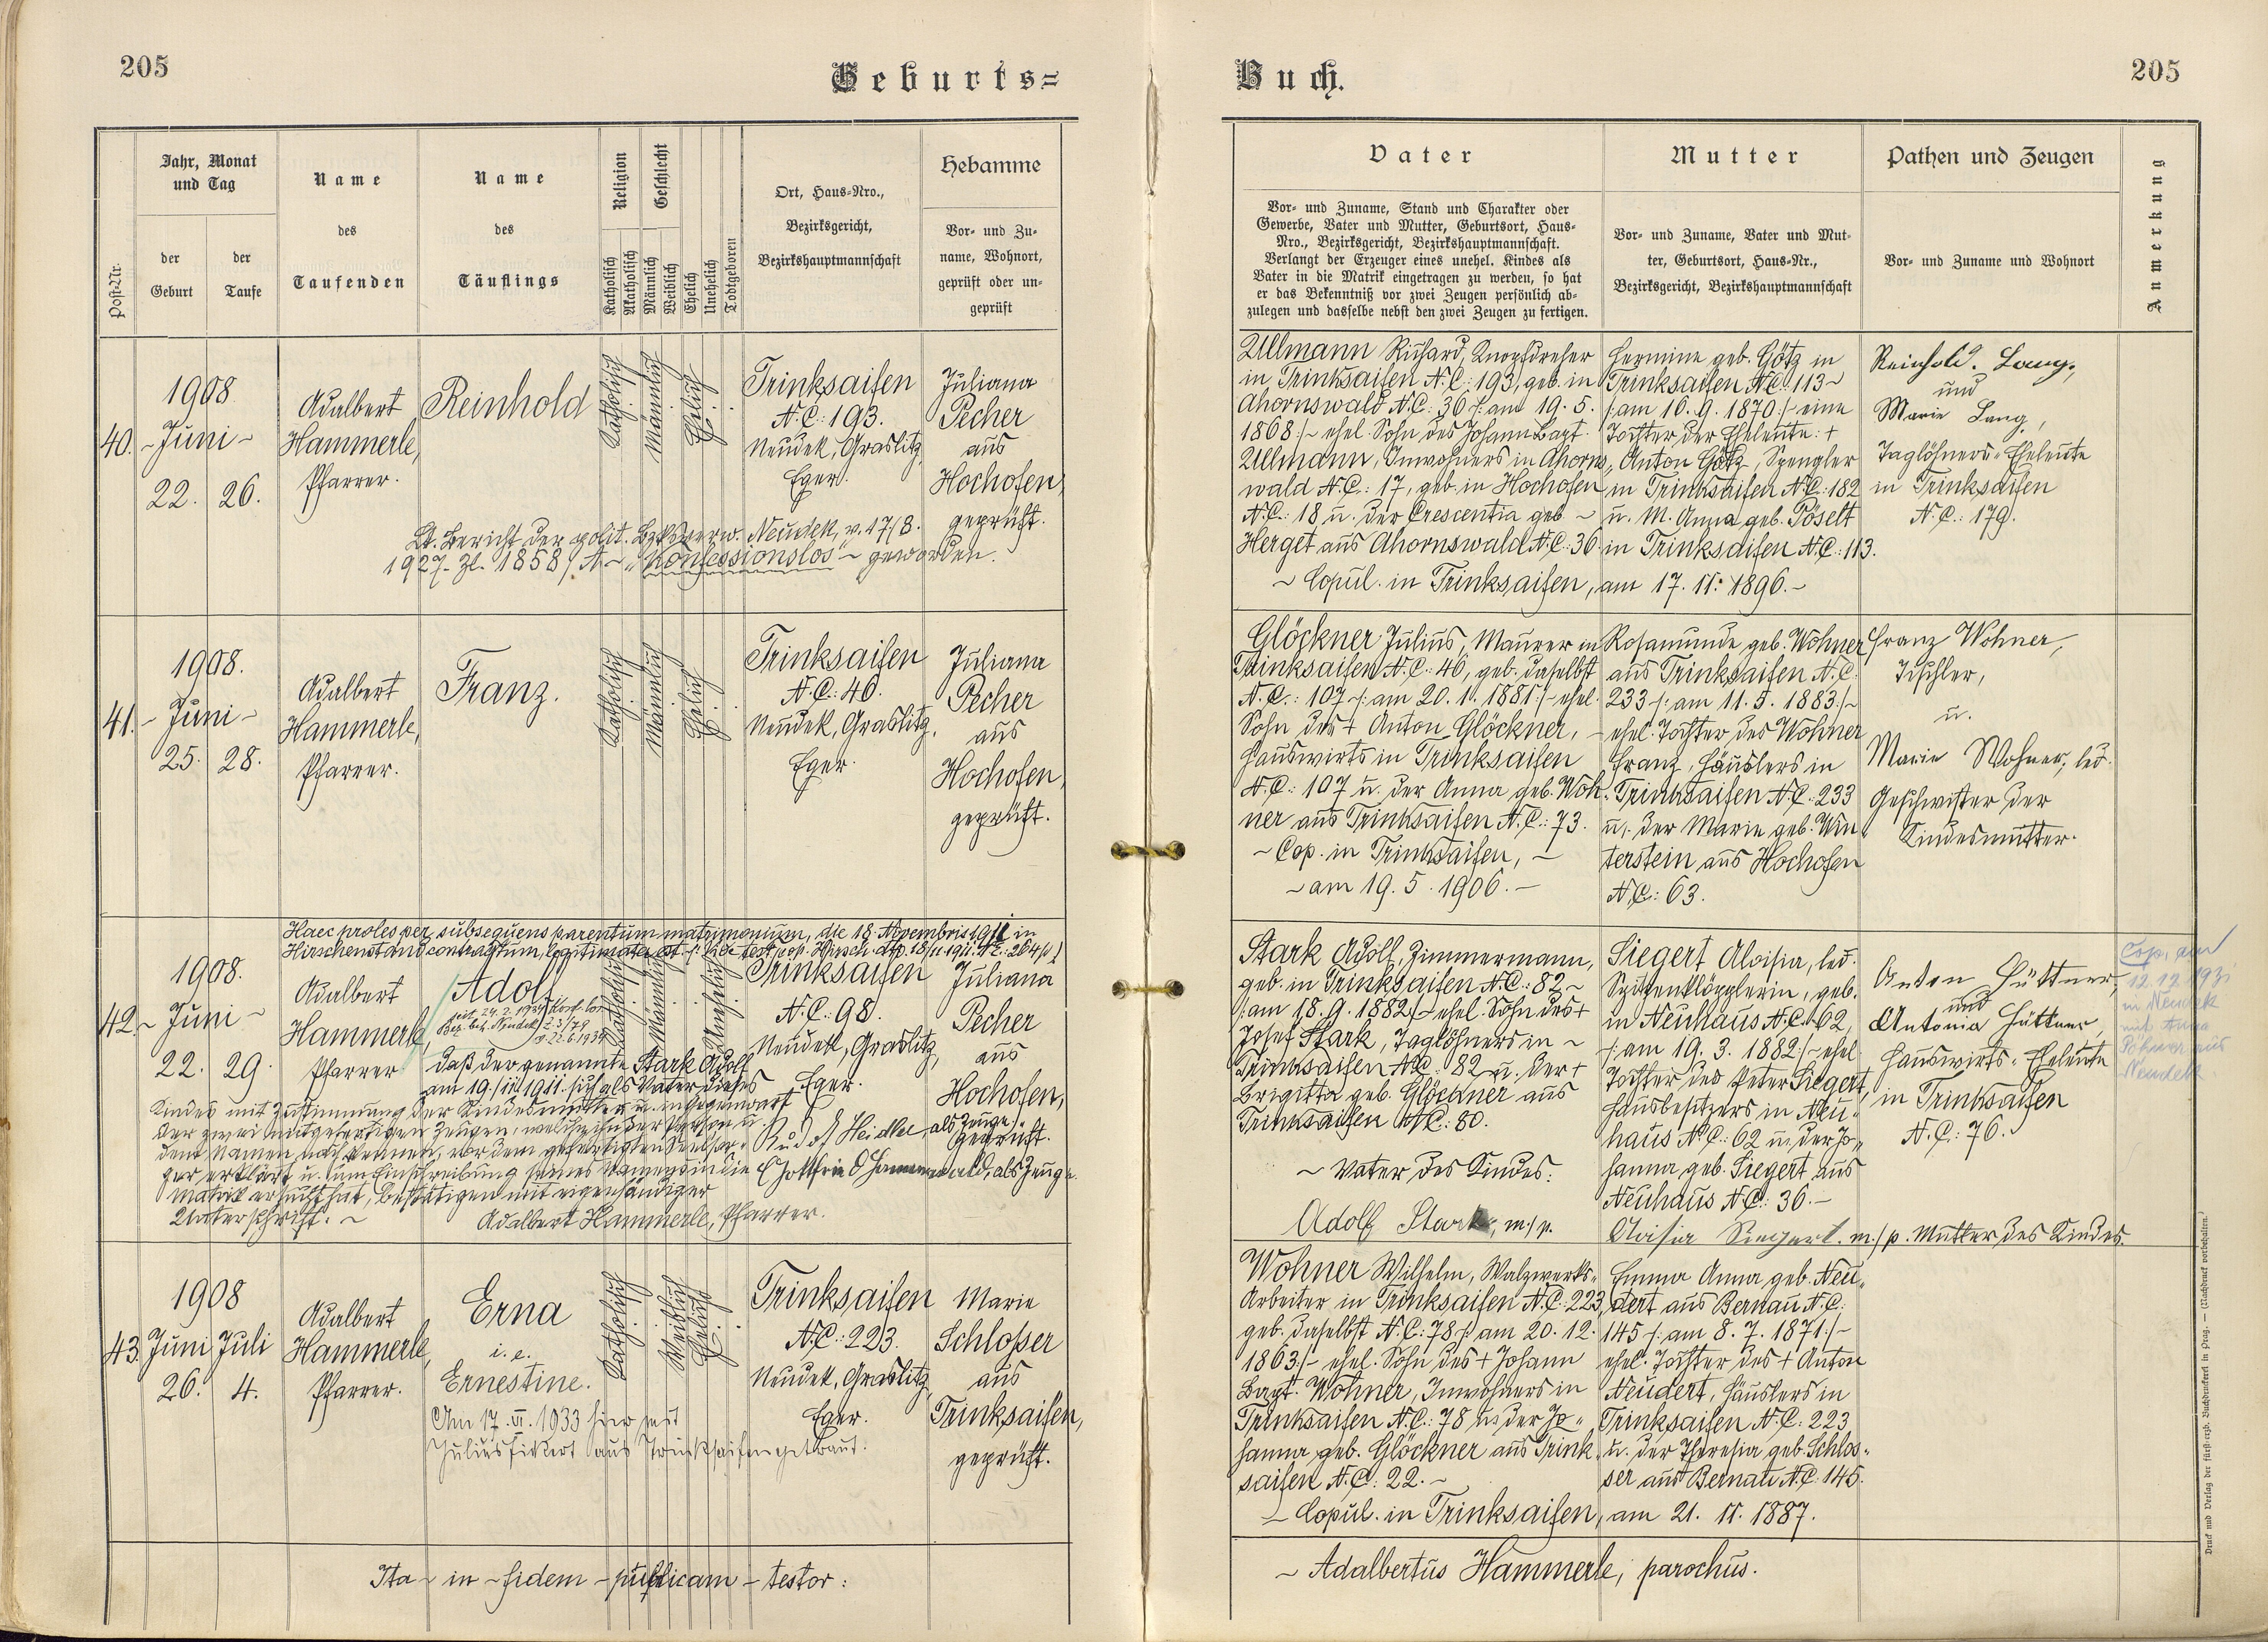 205
Geburts=
Buch.
205
Post-Nr.
Jahr, Monat
und Tag
der
Geburt
der
Taufe
Name
des
Taufenden
Name
des
Täuflings
Religion
Katholisch
Akatholisch
Geschlecht
Männlich
Weiblich
Ehelich
Unehelich
Todtgeboren
Ort, Haus-Nro.,
Bezirksgericht,
Bezirkshauptmannschaft
Hebamme
Vor- und Zu-
name, Wohnort,
geprüft oder un-
geprüft
Vater
Vor- und Zuname, Stand und Charakter oder
Gewerbe, Vater und Mutter, Geburtsort, Haus-
Nro., Bezirksgericht, Bezirkshauptmannschaft.
Verlangt der Erzeuger eines unehel. Kindes als
Vater in die Matrik eingetragen zu werden, so hat
er das Bekenntniß vor zwei Zeugen persönlich ab-
zulegen und dasselbe nebst den zwei Zeugen zu fertigen.
Mutter
Vor- und Zuname, Vater und Mut-
ter, Geburtsort, Haus-Nr.,
Bezirksgericht, Bezirkshauptmannschaft
Pathen und Zeugen
Vor- und Zuname und Wohnort
Anmerkung
40.
1908
~Juni~
22. 26.
Adalbert
Hammerle,
Pfarrer.
Reinhold
Katholisch
Männlich
Ehelich
Trinksaifen
N.C.: 193.
Neudek, Graslitz,
Eger.
Juliana
Pecher
aus
Hochofen,
geprüft.
Lt. Bericht der polit. Bzksverw. Neudek, v. 17/8.
1927. Zl. 1858/A ~ "Konfessionslos" ~ geworden.
Ullmann Richard, Knopfdreher
in Trinksaifen N.C.: 193, geb. in
Ahornswald N.C.: 36 /: am 19. 5.
1868 :/ ~ ehel. Sohn des Johann Bapt.
Ullmann, Inwohners in Ahorns-
wald N.C.: 17, geb. in Hochofen
N.C.: 18 u. der Crescentia geb. ~
Herget aus Ahornswald N.C.: 36.
~ Copul. in Trinksaifen, am 17. 11. 1896. ~
Hermine geb. Götz in
Trinksaifen N.C.: 113 ~
/: am 16. 9. 1870 :/ eine
Tochter der Eheleute: +
Anton Götz, Spengler
in Trinksaifen N.C.: 182
u. M. Anna geb. Pöselt
in Trinksaifen N.C.: 113.
Reinhold Lang,
und
Marie Lang,
Taglöhners-Eheleute
in Trinksaifen
N.C.: 179.
41.
1908.
~ Juni ~
25. 28.
Adalbert
Hammerle,
Pfarrer.
Franz.
Katholisch
Männlich
Ehelich
Trinksaifen
N.C.: 40.
Neudek, Graslitz,
Eger.
Juliana
Pecher
aus
Hochofen,
geprüft.
Glöckner Julius, Maurer in
Trinksaifen N.C.: 40, geb. daselbst
N.C.: 107 /: am 20. 1. 1881 :/ ~ ehel.
Sohn des + Anton Glöckner, ~
Hauswirts in Trinksaifen
N.C.: 107 u. der Anna geb. Woh-
ner aus Trinksaifen N.C.: 73.
~ Cop. in Trinksaifen, ~
~ am 19. 5. 1906. ~
Rosamunde geb. Wohner
aus Trinksaifen N.C.
233 /: am 11. 5. 1883 :/ ~
ehel. Tochter des Wohner
Franz, Häuslers in
Trinksaifen N.C.: 233
u. der Marie geb. Win-
terstein aus Hochofen
N.C.: 63.
Franz Wohner,
Tischler,
u.
Marie Wohner, led.
Geschwister der
Kindesmutter.
Haec proles per subsequens parentum matrimonium, die 18. Novembris 1911 in
Hirschenstand contractum, legitimata est.
42.
1908.
~ Juni ~
22. 29.
Adalbert
Hammerle,
Pfarrer
Adolf
Katholisch
Männlich
Unehelich
Trinksaifen
N.C.: 98.
Neudek, Graslitz,
Eger.
Juliana
Pecher
aus
Hochofen,
geprüft.
Daß der genannte Stark Adolf
am 19./III 1911. sich als Vater dieses
Kindes mit Zustimmung der Kindesmutter u. in Gegenwart
der zwei mitgefertigten Zeugen, welche ihn der Person u.
dem Namen nach kennen, vor dem gefertigten Seelsor-
ger erklärt u. um Einschreibung seines Namens in die
Matrik ersucht hat, bestätigen mit eigenhändiger
Unterschrift. ~
Adalbert Hammerle, Pfarrer.
Rudolf Heidler, als Zeuge.
als Zeuge.
Stark Adolf, Zimmermann,
geb. in Trinksaifen N.C.: 82 ~
/: am 18. 9. 1882 :/ ~ ehel. Sohn des +
Josef Stark, Taglöhners in ~
Trinksaifen N.C.: 82 u. der +
Brigitta geb. Glöckner aus
Trinksaifen N.C.: 80.
~ Vater des Kindes:
Adolf Stark, m./p.
Siegert Aloisia, led.
Spitzenklöpplerin, geb.
in Neuhaus N.C.: 62,
/: am 19. 3. 1882 :/ ~ ehel.
Tochter des Peter Siegert,
Hausbesitzers in Neu-
haus N.C.: 62 u. der Jo-
hanna geb. Siegert aus
Neuhaus N.C.: 36. ~
Aloisia Siegert. m./p. Mutter des Kindes.
Anton Hüttner,
und
Antonia Hüttner,
Hauswirts-Eheleute
in Trinksaifen
N.C.: 76.
Cop. am
12. 12. 1931
in Neudek
mit Anna
Neudek.
43.
1908
Juni Juli
26. 4.
Adalbert
Hammerle,
Pfarrer.
Erna
i. e.
Ernestine.
Katholisch
Weiblich
Ehelich
Trinksaifen
N.C.: 223.
Neudek, Graslitz,
Eger.
Marie
Schlosser
aus
Trinksaifen,
geprüft.
Am 17. VI. 1933 hier mit
Julius Fickert aus Trinksaifen getraut.
Wohner Wilhelm, Walzwerks-
Arbeiter in Trinksaifen N.C.: 223,
geb. daselbst N.C.: 78 /: am 20. 12.
1863 :/ ~ ehel. Sohn des + Johann
Bapt. Wohner, Inwohners in
Trinksaifen N.C.: 78 u. der Jo-
hanna geb. Glöckner aus Trink-
saifen N.C.: 22. ~
~ Copul. in Trinksaifen, am 21. 11. 1887.
Emma Anna geb. Neu-
dert aus Bernau N.C.:
145 /: am 8. 7. 1871 :/ ~
ehel. Tochter des + Anton
Neudert, Häuslers in
Trinksaifen N.C.: 223
u. der Theresia geb. Schlos-
ser aus Bernau N.C.: 145.
Ita ~ in ~ fidem ~ publicam ~ testor:
~ Adalbertus Hammerle, parochus.
Druck und Verlag der fürst-erzb. Buchdruckerei in Prag. — (Nachdruck vorbehalten.)